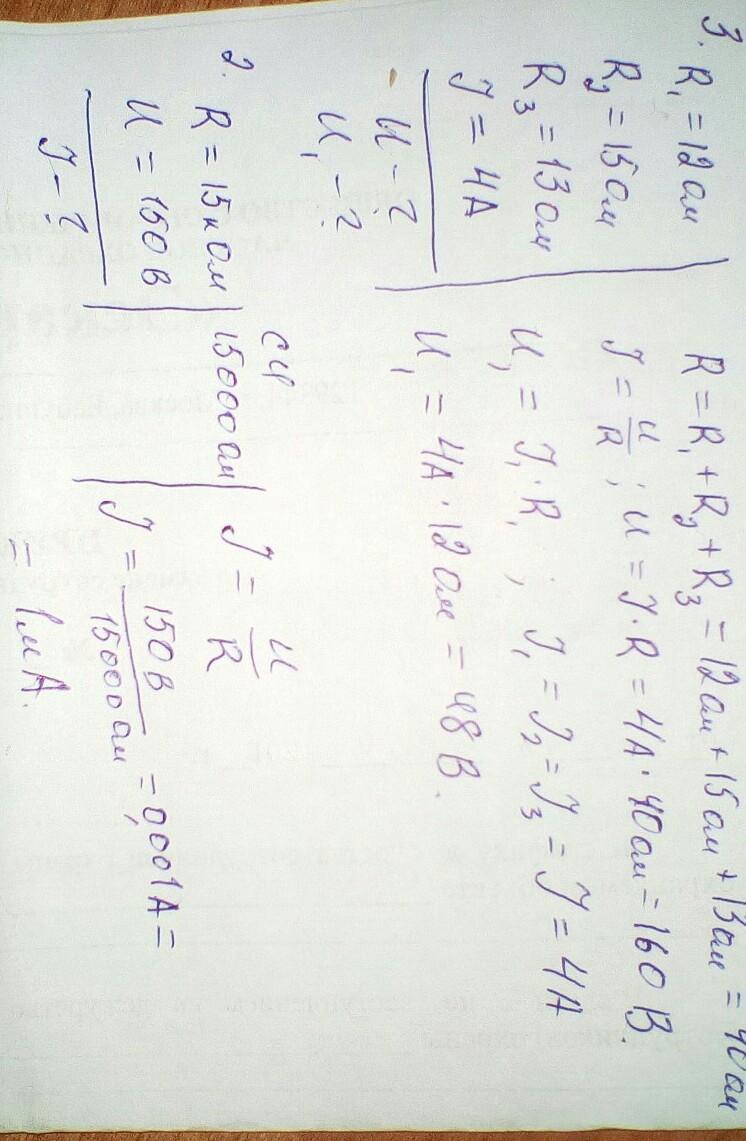 3. R₁ = 12 ом
R₂ = 15 ом
R₃ = 13 ом
J = 4А
U - ?
U₁ - ?
R = R₁ + R₂ + R₃ = 12 ом + 15 ом + 13 ом = 40 ом
J = U/R ; U = J · R = 4А · 40 ом = 160 В.
U₁ = J₁ · R₁ ; J₁ = J₂ = J₃ = J = 4А
U₁ = 4А · 12 ом = 48 В.
2. R = 15 к ом
U = 150 в
J - ?
СИ
15000 ом
J = U/R
J = 150 в/15000 ом = 0,001 А =
= 1 мА.